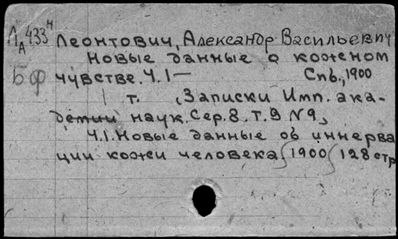 АА 433н Леонтович, Александр Васильевич
Новые данные о кожном
Бф чувстве. Ч.1— Спб., 1900
1 т. (Записки Имп. ака-
демии наук. Сер. 8. т. 9 №9)
Ч.1. Новые данные об иннерва
ции кожи человека 1900 128 стр